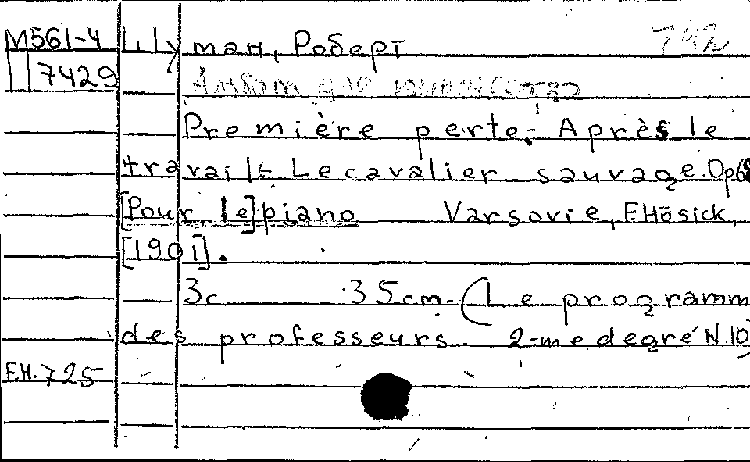 М561-4 Шуман, Роберт
7429 Альбом для юношества
Première perte. Après le
travail. Le cavalier sauvage. Op 68
[Pour le] piano Varsovie, F. Hösick,
[1901].
3c 35cm. (Le programm
des professeurs. 2-me degré N 10
F.H. 725